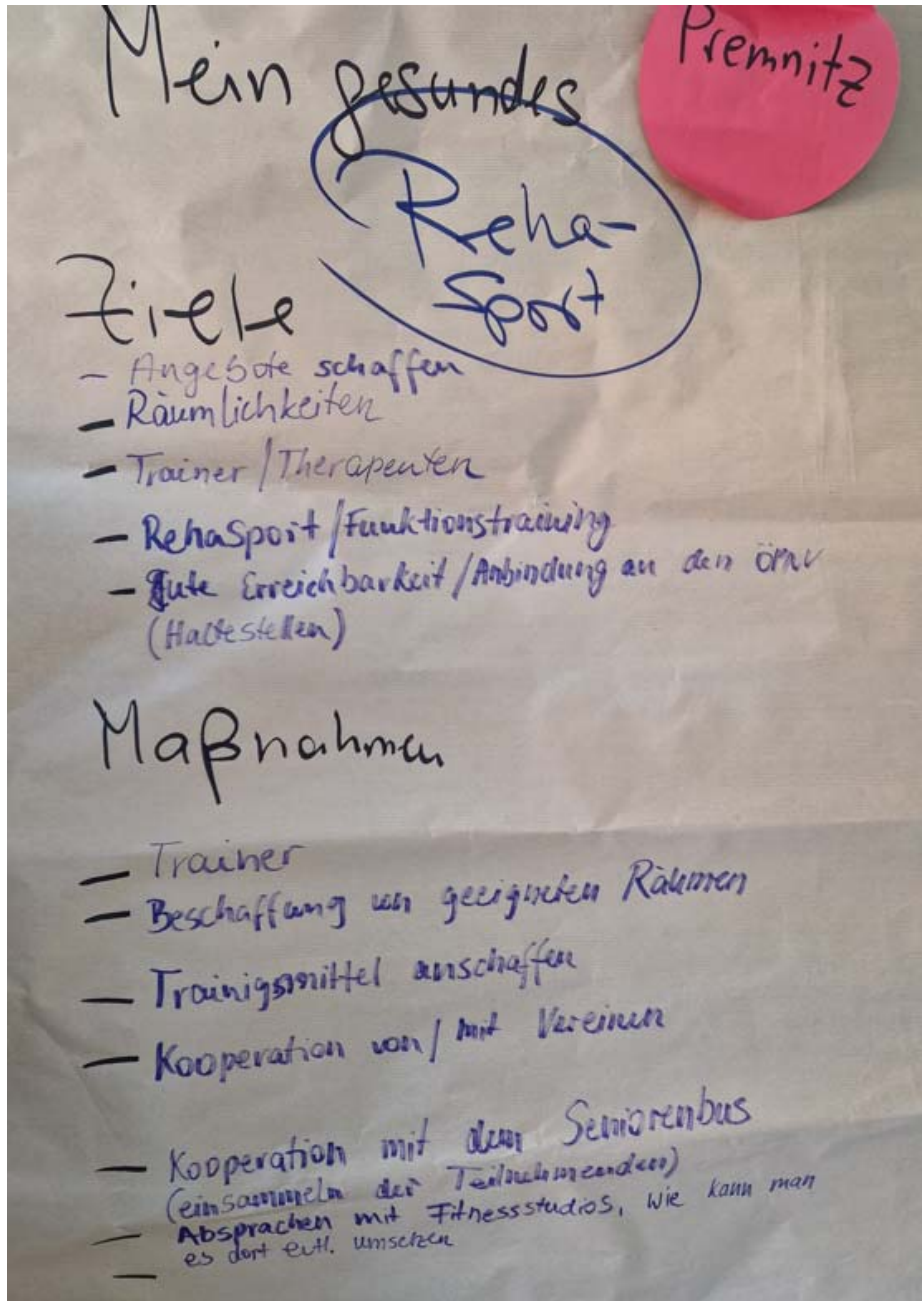 Mein gesundes
Premnitz
Reha-
Sport
Ziele
- Angebote schaffen
- Räumlichkeiten
- Trainer/Therapeuten
- RehaSport/Funktionstraining
- Gute Erreichbarkeit/Anbindung an den ÖPNV
(Haltestellen)
Maßnahmen
- Trainer
- Beschaffung von geeigneten Räumen
- Trainigsmittel anschaffen
- Kooperation von/mit Vereinen
- Kooperation mit dem Seniorenbus
(einsammeln der Teilnehmenden)
- Absprachen mit Fitnessstudios, wie kann man
es dort evtl. umsetzen
-